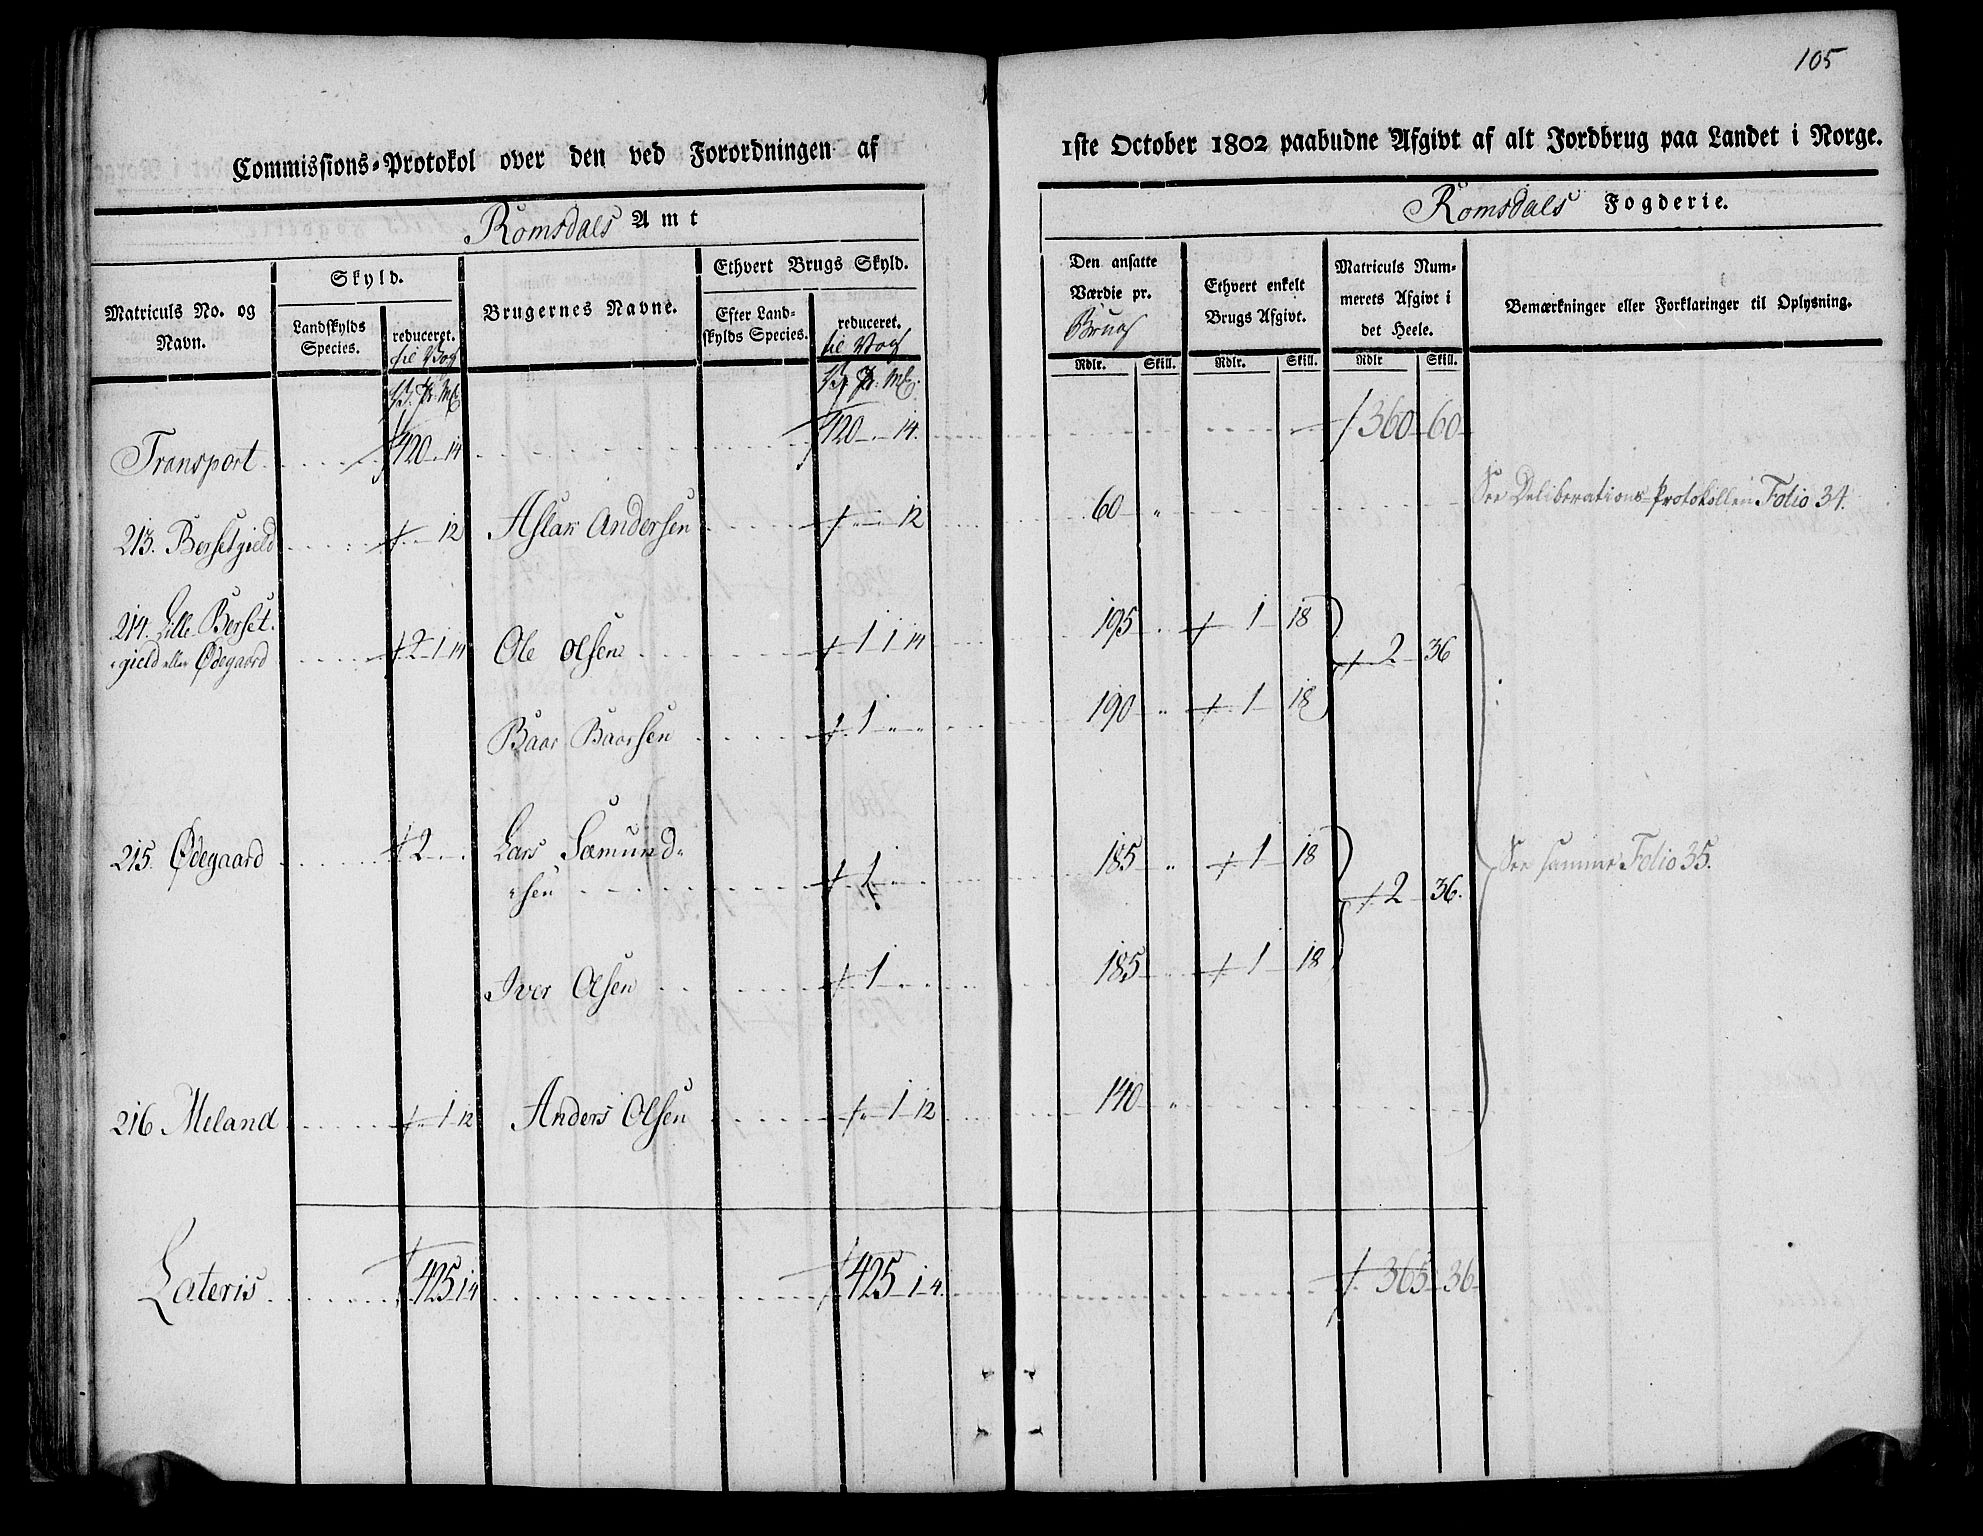 105
Commissions-Protokol over den ved Forordningen af
1ste October 1802 paabudne Afgivt af alt Jordbrug paa Landet i Norge.
Romsdals Amt
Romsdals Fogderie.
Matriculs No. og Navn.
Skyld.
Landskylds Species.
reduceret. til Vog
Brugernes Navne.
Ethvert Brugs Skyld.
Efter Landskylds Species.
reduceret. til Vog
Den ansatte Værdie pr. Brug
Ethvert enkelt Brugs Afgivt.
Matriculs Nummerets Afgivt i det Heele.
Bemærkninger eller Forklaringer til Oplysning.
Rdlr. Skill. Rdlr. Skill. Rdlr Skill.
Transport 420 - 14 420 - 14. 360 - 60
213. Bersetgield - 12 Aslak Andersen - 12 60 " See Deliberations-Protokollen Folio 34.
214. Lille Berset-
gield eller Ødegaard 2 - 1 14 Ole Olsen 1 1 14 195 1 18 2 - 36
Baar Baarsen 1 " " 190 " 1 18
215. Ødegaard 2 Lars Sæmund-
sen 1 185 " 1 18 2 36. See samme Folio 35.
Iver Olsen 1 185 1 18
216 Meland 1 12 Anders Olsen 1 12 140 "
Lateris 425 1 4 425 - 1 - 4. 365 - 36